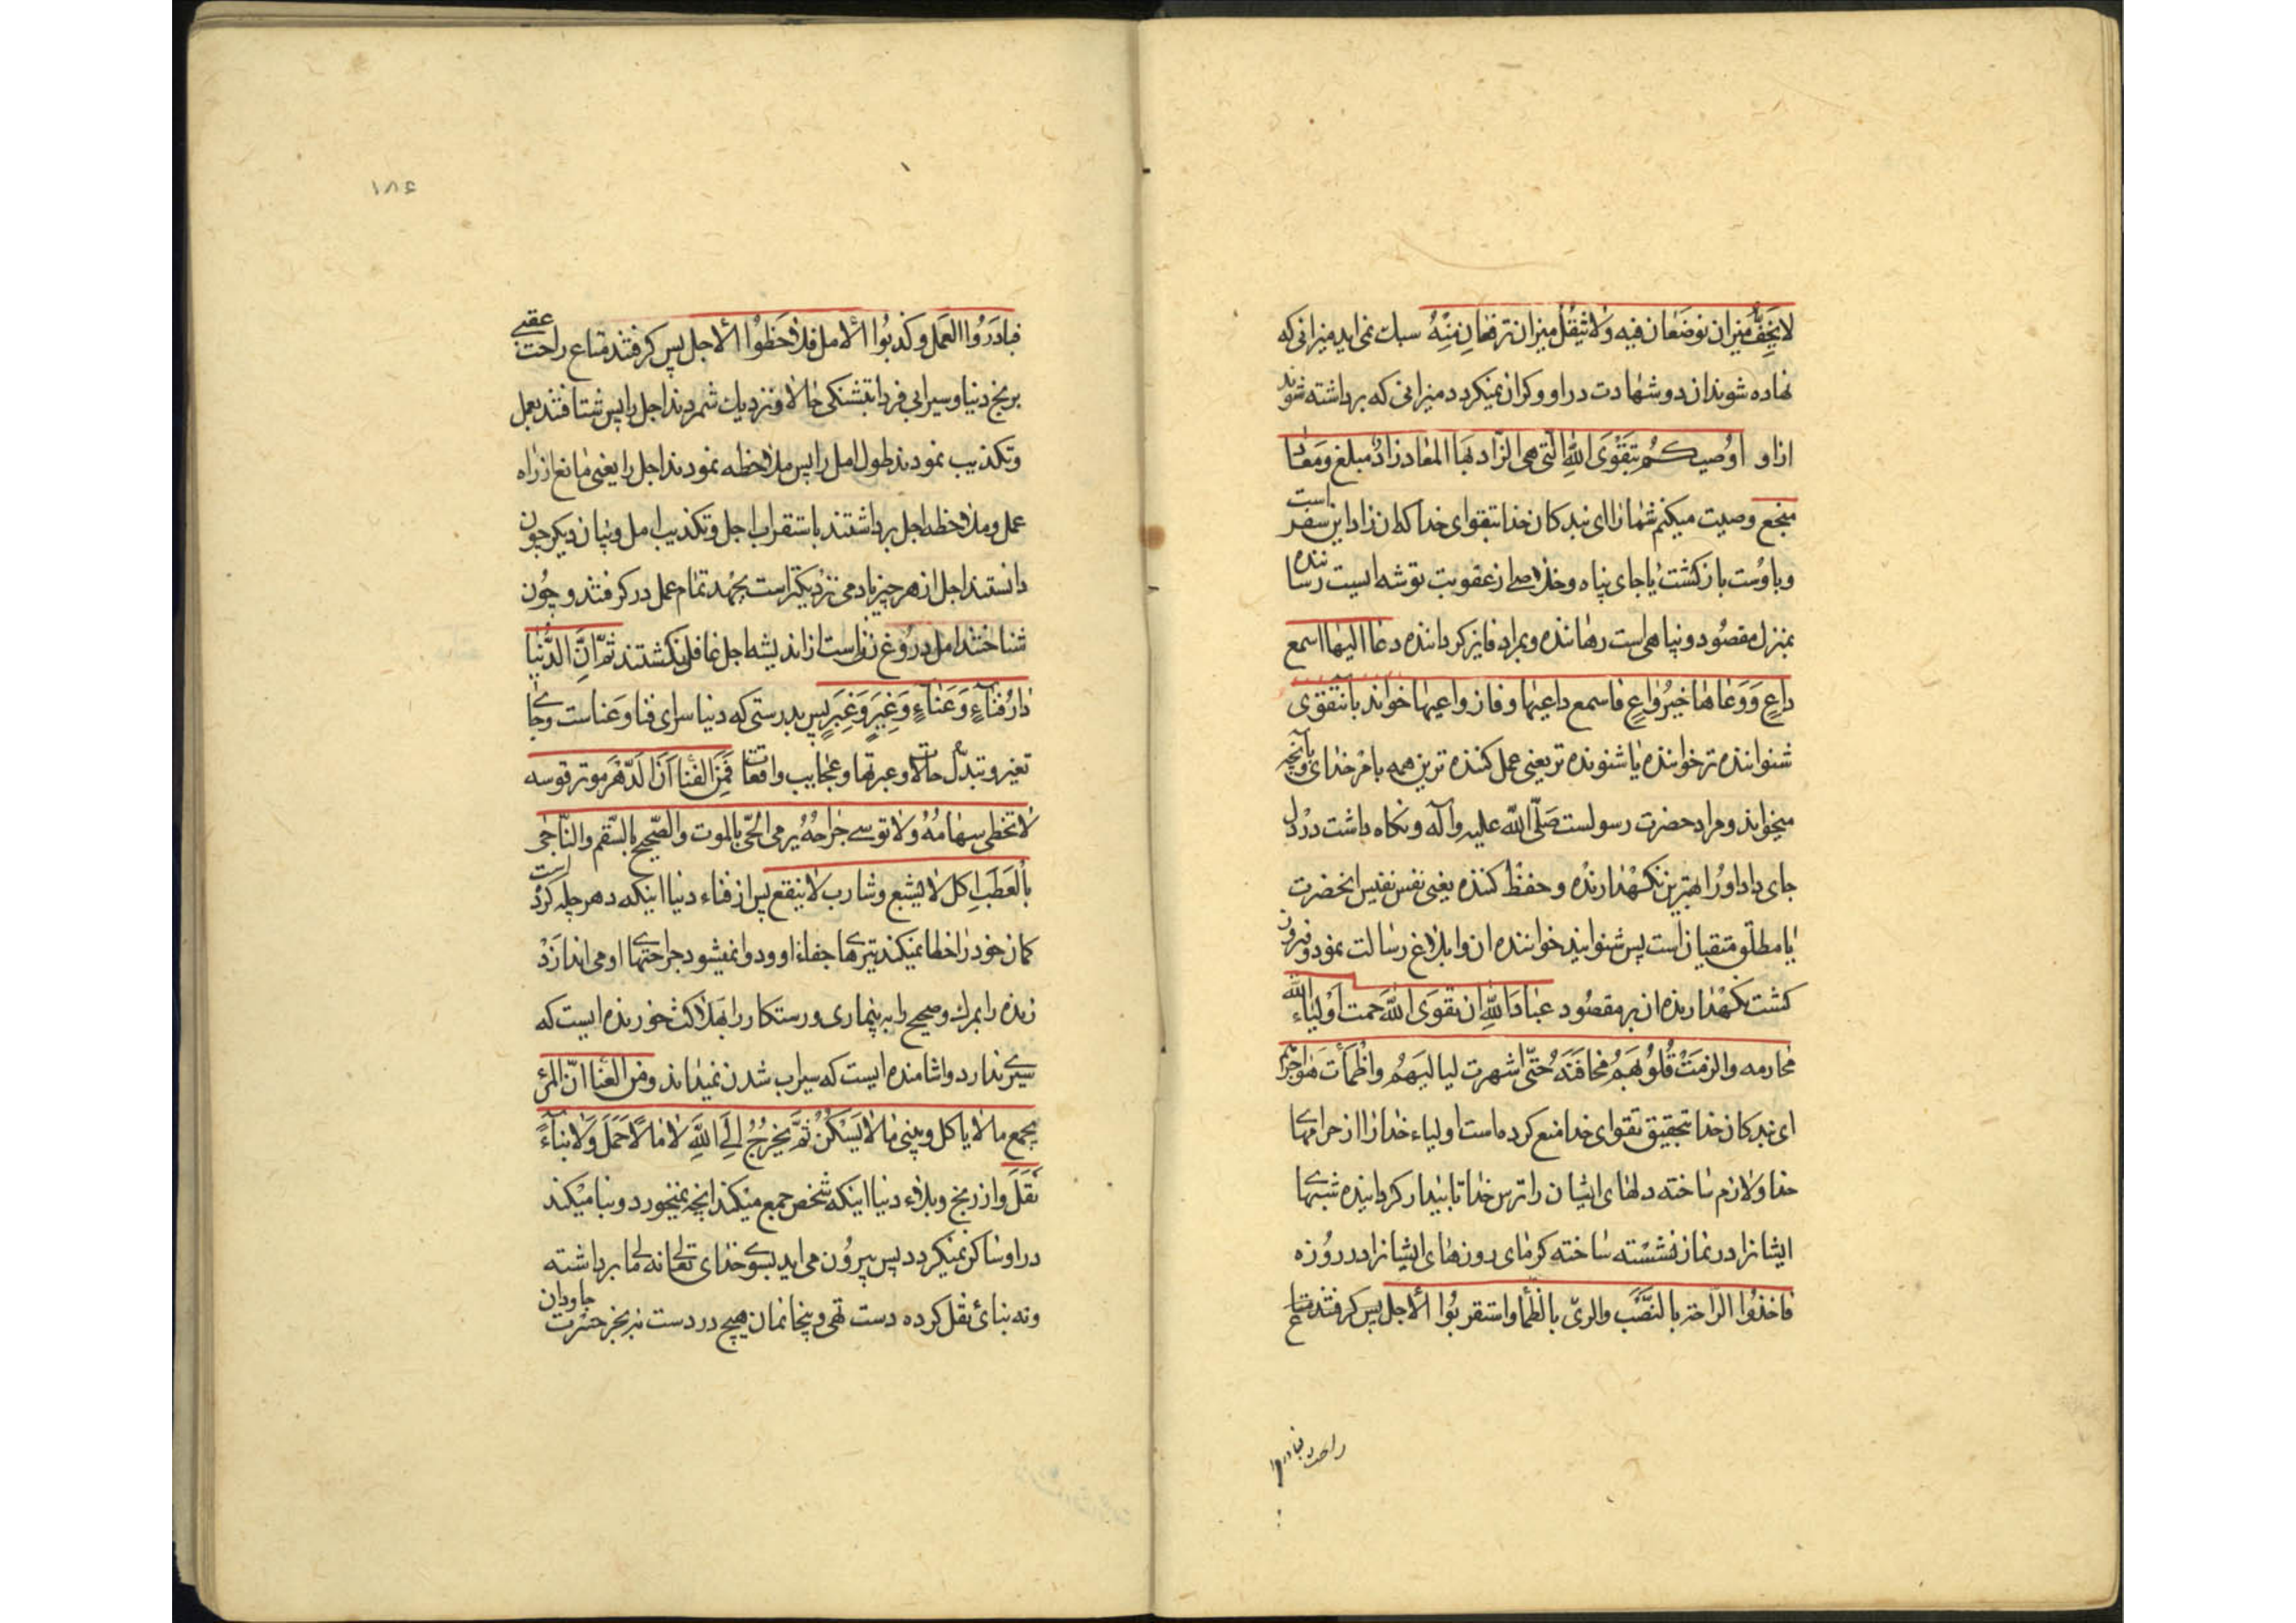 لا يخفّ ميزان توضعان فيه ولا يثقل ميزان ترفعان منه سبك نمی اید میزانی که
نهاده شوند ان دو شهادت در او و کران نمیکردد میزانی که برداشته شوند
از او اوصيكم بتقوى الله التي هي الزاد وبها المعاد زاد مبلغ ومعاد
منجع وصیت میکنم شما را ای بندکان خدا بتقوای خدا که ان زاد این سفر است
و باوست بازکشت یا جای پناه و خلاصی از عقوبت توشه ایست رساننده
بمنزل مقصود و پناهی است رهاننده و بمراد فایز کرداننده دعا اليها اسمع
داع ووعاها خير واع فاسمع داعيها وفاز واعيها خواند بآن تقوی
شنواننده تر خواننده یا شنونده تر یعنی عمل کننده ترین همه بامر خدای و بآنچه
میخواند و مراد حضرت رسولست صلّی الله علیه وآله و نکاه داشت در دل
جای داد او را بهترین نکهدارنده و حفظ کننده یعنی نفس نفیس انحضرت
یا مطلق متقیان است پس شنوانید خواننده ان و ابلاغ رسالت نمود و فیروز
کشت نکهدارنده ان بر مقصود عباد الله ان تقوى الله حمت اولياء الله
محارمه والزمت قلوبهم مخافته حتّى اشهرت لياليهم واظمأت هواجرهم
ای بندکان خدا بتحقیق تقوای خدا منع کرده است اولیاء خدا را از حرامهای
خدا و لازم ساخته دلهای ایشان را ترس خدا تا بیدار کرداننده شبهای
ایشانرا در نماز و تشنه ساخته کرمای روزهای ایشانرا در روزه
فاخذوا الراحة بالنصب والرىّ بالظمأ واستقربوا الأجل پس کرفتند متاع
راحت فبادروا
۱۸۶
فبادروا العمل وكذبوا الأمل فلاحظوا الأجل پس کرفتند متاع راحت عقبی
برنج دنیا و سیرابی فردا بتشنکی حالا و نزدیک شمردند اجل را پس شتافتند بعمل
و تکذیب نمودند طول امل را پس ملاحظه نمودند اجل را یعنی مانع از راه
عمل و ملاحظه اجل برداشتند باستقراب اجل و تکذیب امل و بیان دیکر چون
دانستند اجل از هر چیز بادمی نزدیکتر است بجهد تمام عمل در کرفتند و چون
شناختند امل دروغ زن است از اندیشه اجل غافل نکشتند ثمّ انّ الدنيا
دار فناء وعناء وغير وعبر پس بدرستی که دنیا سرای فنا و عناست و جای
تغیر و تبدّل حالات و عبرتها و عجایب واقعات فمن الفناء انّ الدهر موتر قوسه
لا تخطى سهامه ولا توسى جراحه يرمى الحىّ بالموت والصحيح بالسقم والناجى
بالعطب اكل لا يشبع وشارب لا ينقع پس از فناء دنیا اینکه دهر چله کرده است
کمان خود را خطا نمیکند تیرهای جفاء او و دوا نمیشود جراحتهای او می اندازد
زنده را بمرک و صحیح را به بیماری و رستکار را بهلاکت خورنده ایست که
سیری ندارد و اشامنده ایست که سیراب شدن نمیداند ومن العناء انّ المرء
يجمع ما لا ياكل ويبنى ما لا يسكن ثمّ يخرج الى الله لا مالا حمل ولا بناء
نقل و از رنج و بلاء دنیا اینکه شخص جمع میکند انچه نمیخورد و بنا میکند
در او ساکن نمیکردد پس بیرون می اید بسوی خدای تعالی نه مالی برداشته
و نه بنائی نقل کرده دست تهی و بیخانمان هیچ در دست نه بجز حسرت جاودان